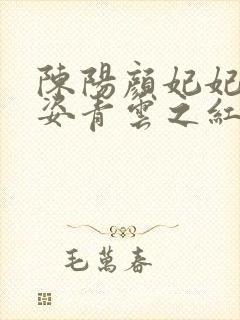 陳陽顏妃妃
姿青雲之紅
毛萬春